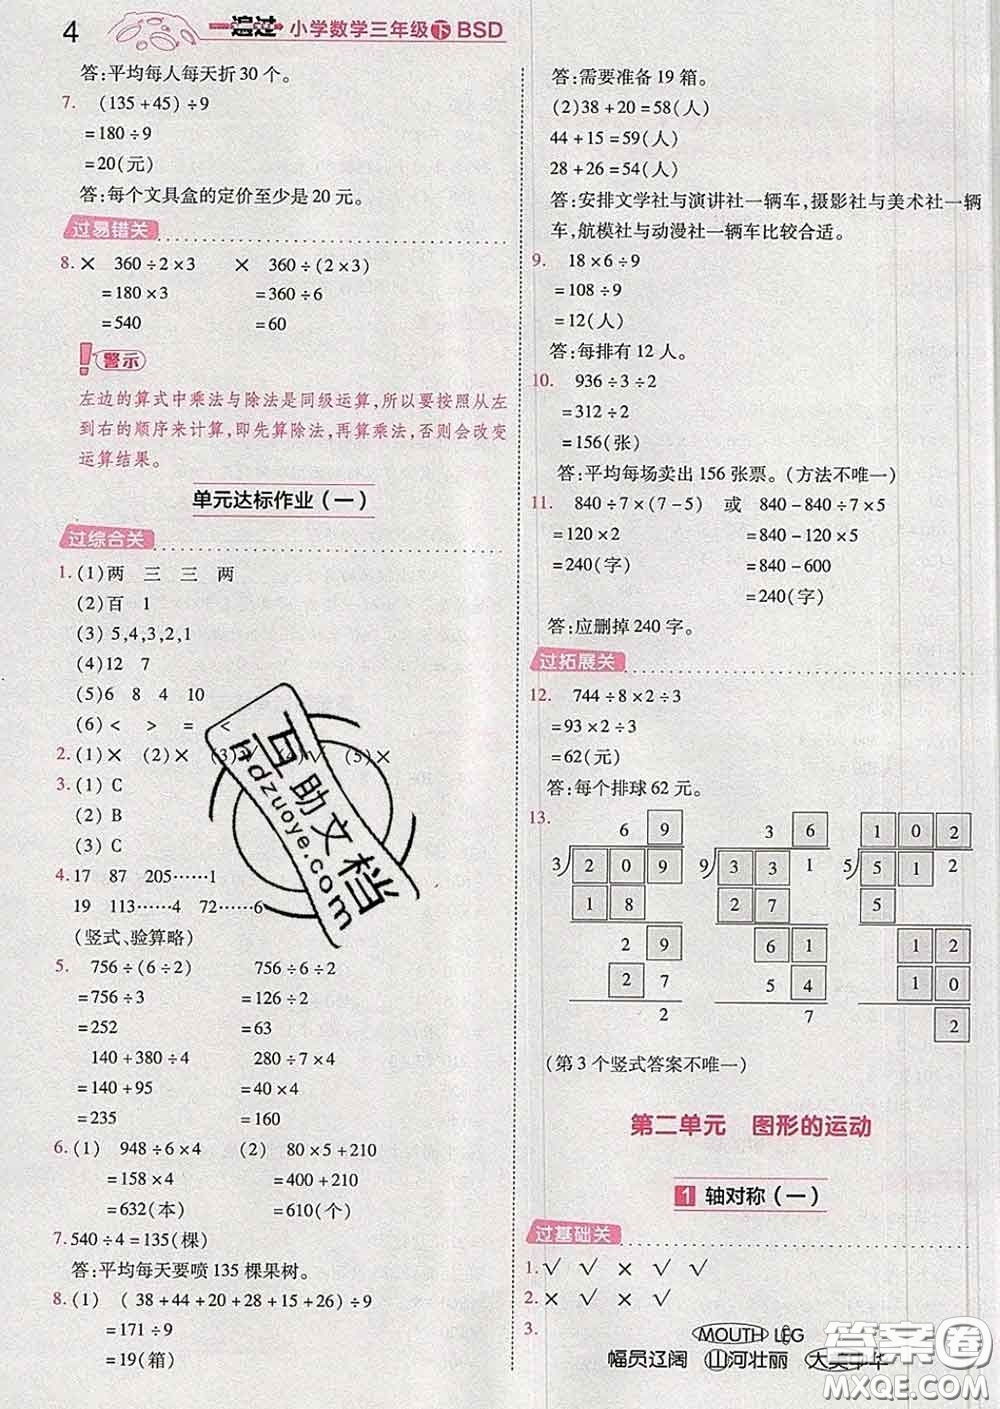 4 一遍过 小学数学三年级 下 BSD
答:平均每人每天折 30 个。
7. (135+45)÷9
=180÷9
=20(元)
答:每个文具盒的定价至少是 20 元。
过易错关
8. × 360÷2×3 × 360÷(2×3)
=180×3 =360÷6
=540 =60
警示
左边的算式中乘法与除法是同级运算,所以要按照从左
到右的顺序来计算,即先算除法,再算乘法,否则会改变
运算结果。
单元达标作业(一)
过综合关
1. (1)两 三 三 两
(2)百 1
(3) 5,4,3,2,1
(4)12 7
(5)6 8 4 10
(6)< > = <
2. (1)× (2)× (3) (5)×
3. (1) C
(2) B
(3) C
4. 17 87 205……1
19 113……4 72……6
(竖式、验算略)
5. 756÷(6÷2) 756÷6÷2
=756÷3 =126÷2
=252 =63
140+380÷4 280÷7×4
=140+95 =40×4
=235 =160
6. (1) 948÷6×4 (2) 500+110
=158×4 =500+110
=632(本) =610(个)
7. 540÷4=135(棵)
答:平均每天要喷 135 棵果树。
8. (1) (38+44+20+28+15+26)÷9
=171÷9
=19(箱)
答:需要准备 19 箱。
(2)38+20=58(人)
44+15=59(人)
28+26=54(人)
答:安排文学社与演讲社一辆车,摄影社与美术社一辆
车,航模社与动漫社一辆车比较合适。
9. 18×6÷9
=108÷9
=12(人)
答:每排有 12 人。
10. 936÷3÷2
=312÷2
=156(张)
答:平均每场卖出 156 张票。(方法不唯一)
11. 840÷7×(7-5) 或 840-840÷7×5
=120×2 =840-120×5
=240(字) =840-600
=240(字)
答:应删掉 240 字。
过拓展关
12. 744÷8×2÷3
=93×2÷3
=62(元)
答:每个排球 62 元。
13.
6 9 3 6 1 0 2
3 2 0 9 9 3 3 1 5 5 1 2
1 8 2 7 5
2 9 6 1 1 2
2 7 5 4 1 0
2 7 2
(第 3 个竖式答案不唯一)
第二单元 图形的运动
1 轴对称(一)
过基础关
1. √ √ × √ √
2. × √ × × √
3. MOUTH LEG
幅员辽阔 山河壮丽 大美中华
互助文档
hdzuoye.com
答案圈
MXQE.COM